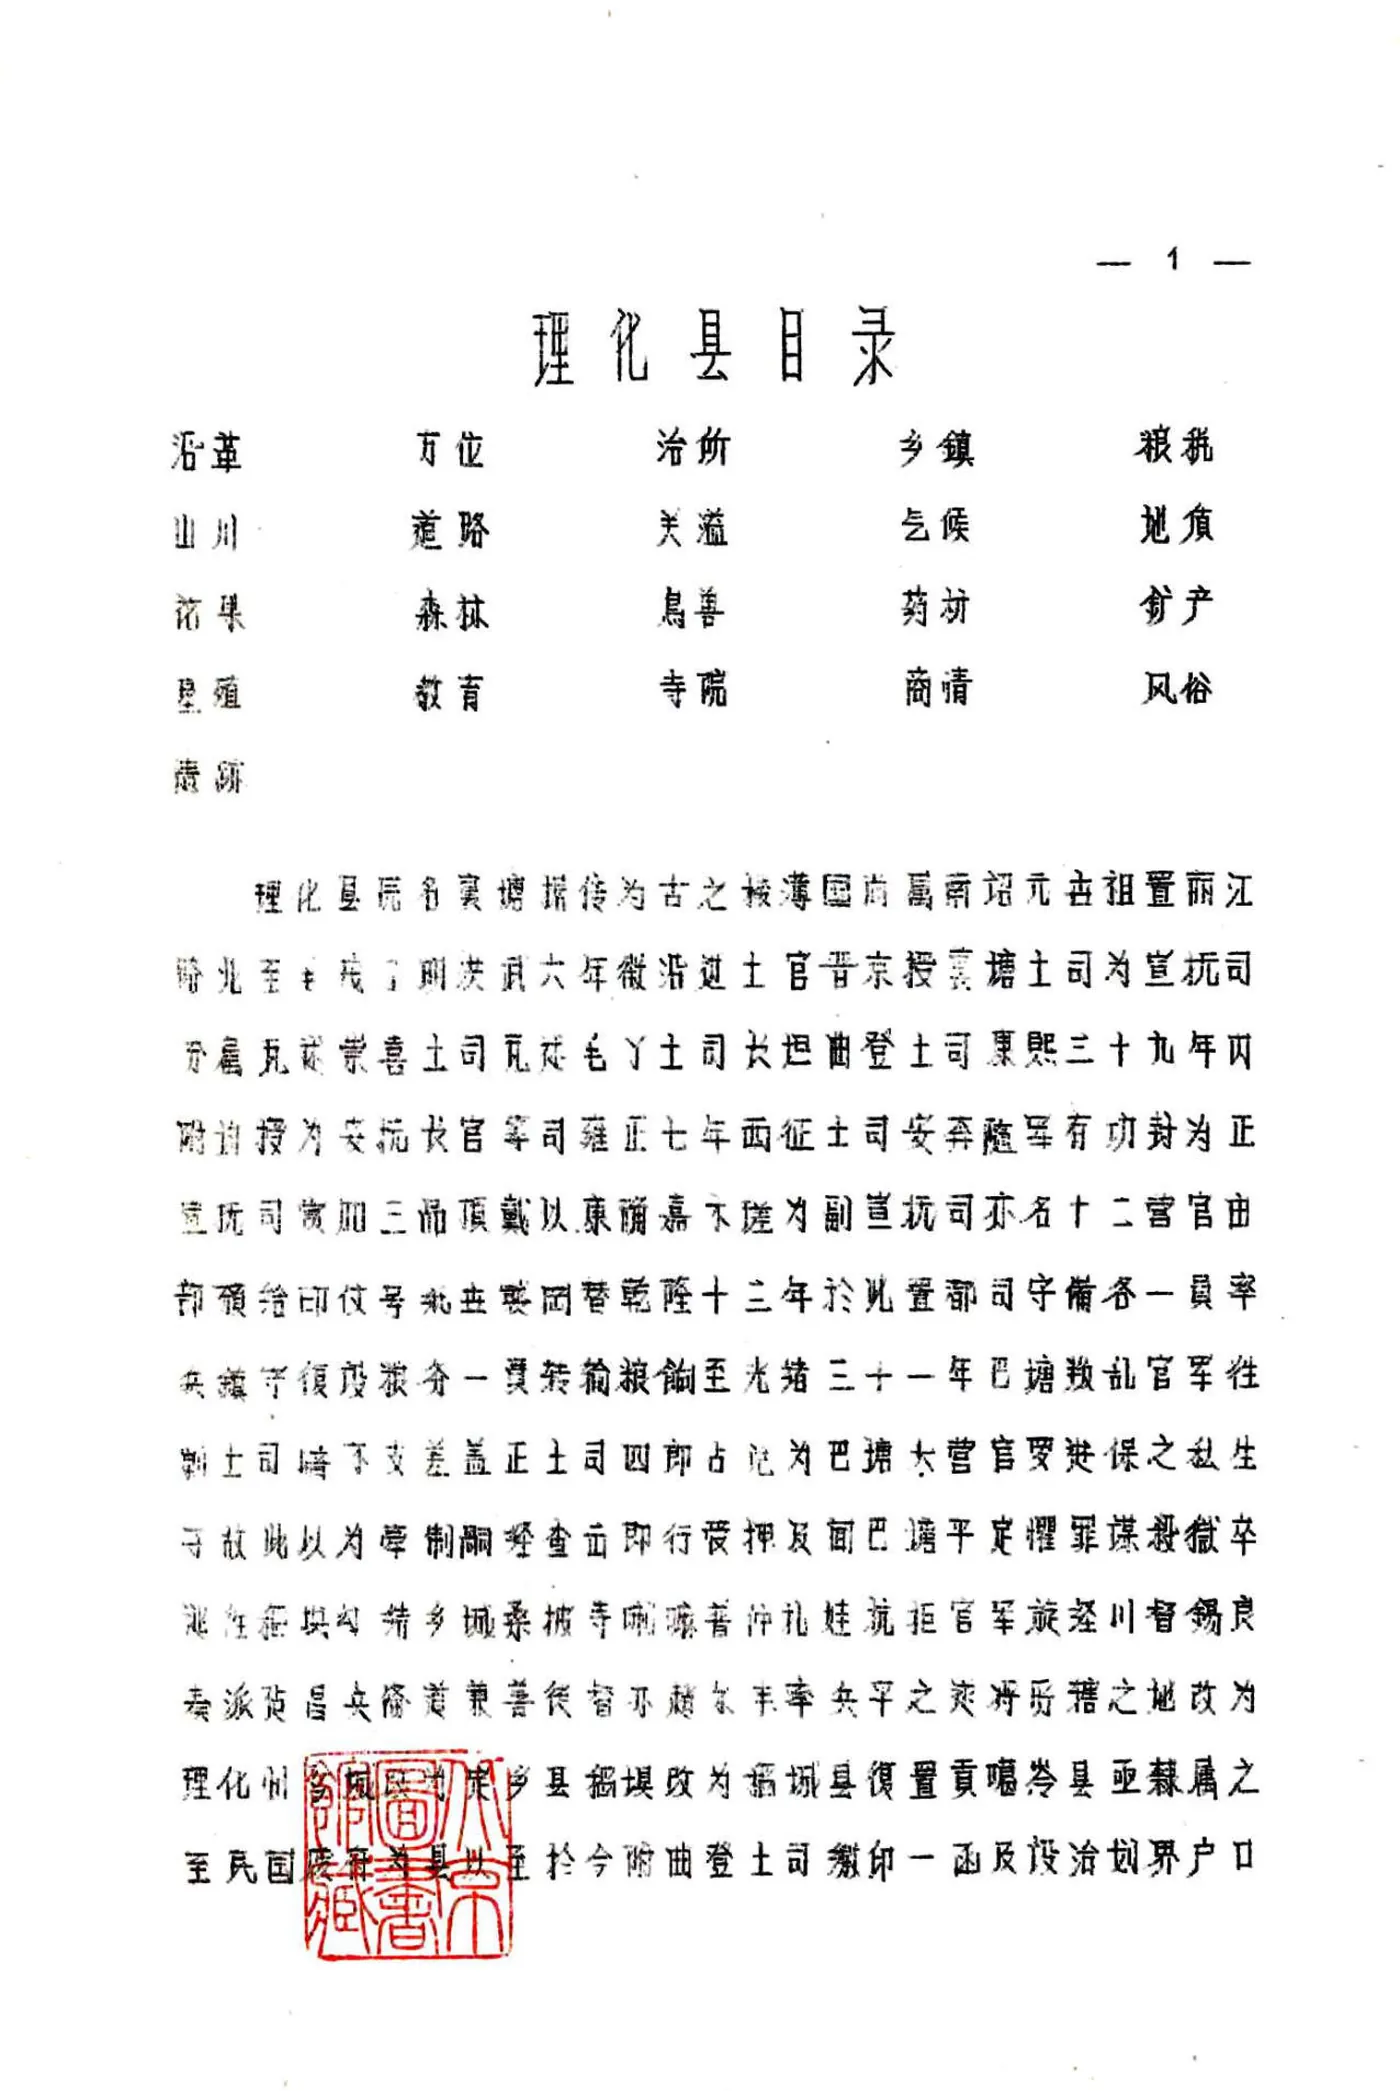 — 1 —
理化县目录
沿革 方位 治所 乡镇 粮税
山川 道路 关溢 气候 地质
花果 森林 鳥兽 药材 矿产
垦殖 教育 寺院 商情 风俗
遗跡
理化县原名裏塘据传为古之棱薄国尚属南诏元世祖置丽江
路北至明洪武六年徼沿边土官晋京授裏塘土司为宣抚司
分属瓦述崇喜土司瓦述毛丫土司长坦曲登土司康熙三十九年内
附詢授为安抚长官等司雍正七年西征土司安奔隨军有功封为正
宣抚司赏加三品頂戴以康确嘉木瑳为副宣抚司亦名十二营官由
部頒给印信号纸世襲罔替乾隆十三年於此置都司守備各一員率
兵鎮守復設粮务一員转输粮餉至光绪三十一年巴塘叛乱官军往
剿土司暗不支差盖正土司四郎占兑为巴塘大营官罗进保之私生
子故此以为牵制嗣经查出即行爱押及闻巴塘平定懼罪谋殺獄卒
逃往稻埧勾结乡城桑披寺喇嘛普仲札娃抗拒官军旋经川督锡良
奏派建昌兵备道兼善後督办趙尔丰率兵平之遂将所辖之地改为
理化州乡城改为定乡县稻埧改为稻城县復置貢噶岭县亟隸属之
至民国废府为县以至於今附曲登土司缴印一函及设治划界户口